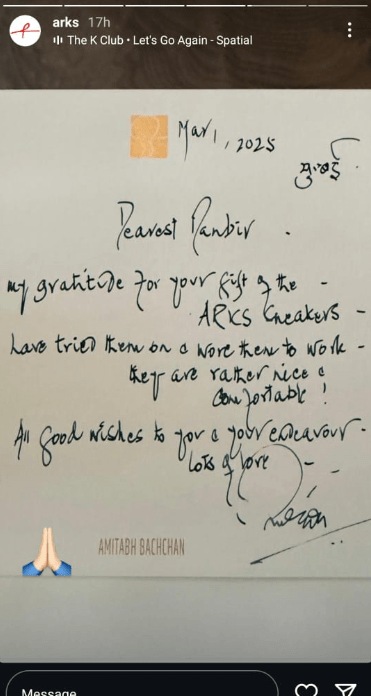 arks 17h
The K Club • Let's Go Again - Spatial
Mar 1, 2025
मुंबई
Dearest Ranbir .
my gratitude for your gift of the -
ARKS Sneakers -
have tried them on & wore them to work -
they are rather nice &
comfortable !
All good wishes to you & your endeavour -
lots of love -
AMITABH BACHCHAN
Message